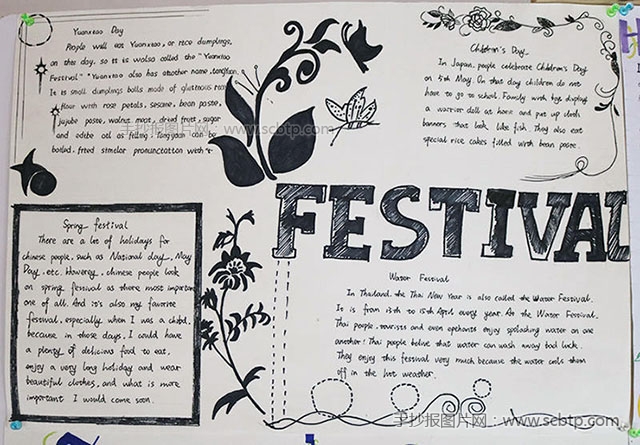 Yuanxiao Day
People will eat Yuanxiao, or rice dumplings,
on this day, so it is also called the "Yuanxiao
Festival." "Yuanxiao also has another name, tangyuan.
It is small dumplings balls made of glutinous rice
flour with rose petals, sesame, bean paste,
jujube paste, walnut meat, dried fruit, sugar
and edible oil as filling. Tangyuan can be
boiled, fried similar pronunciation with
Children's Day
In Japan, people celebrate Children's Day
on 5th May. On that day children do not
have to go to school. Family with boys display
a warrior doll at home and put up cloth
banners that look like fish. They also eat
special rice cakes filled with bean paste.
FESTIVAL
Spring festival
There are a lot of holidays for
chinese people, such as National day, May
Day, etc. However, chinese people look
on spring festival as there most important
one of all. And it's also my favorite
festival, especially when I was a child,
because in those days, I could have
a plenty of delicious food to eat,
enjoy a very long holiday and wear
beautiful clothes, and what is more
important I would come soon.
Water Festival
In Thailand, the Thai New Year is also called the Water Festival.
It is from 13th to 15th April every year. At the Water Festival,
Thai people, tourists and even elephants enjoy splashing water on one
another! Thai people belive that water can wash away bad luck.
They enjoy this festival very much because the water cools them
off in the hot weather.
手抄报图片网:www.scbtp.com
手抄报图片网:www.scbtp.com